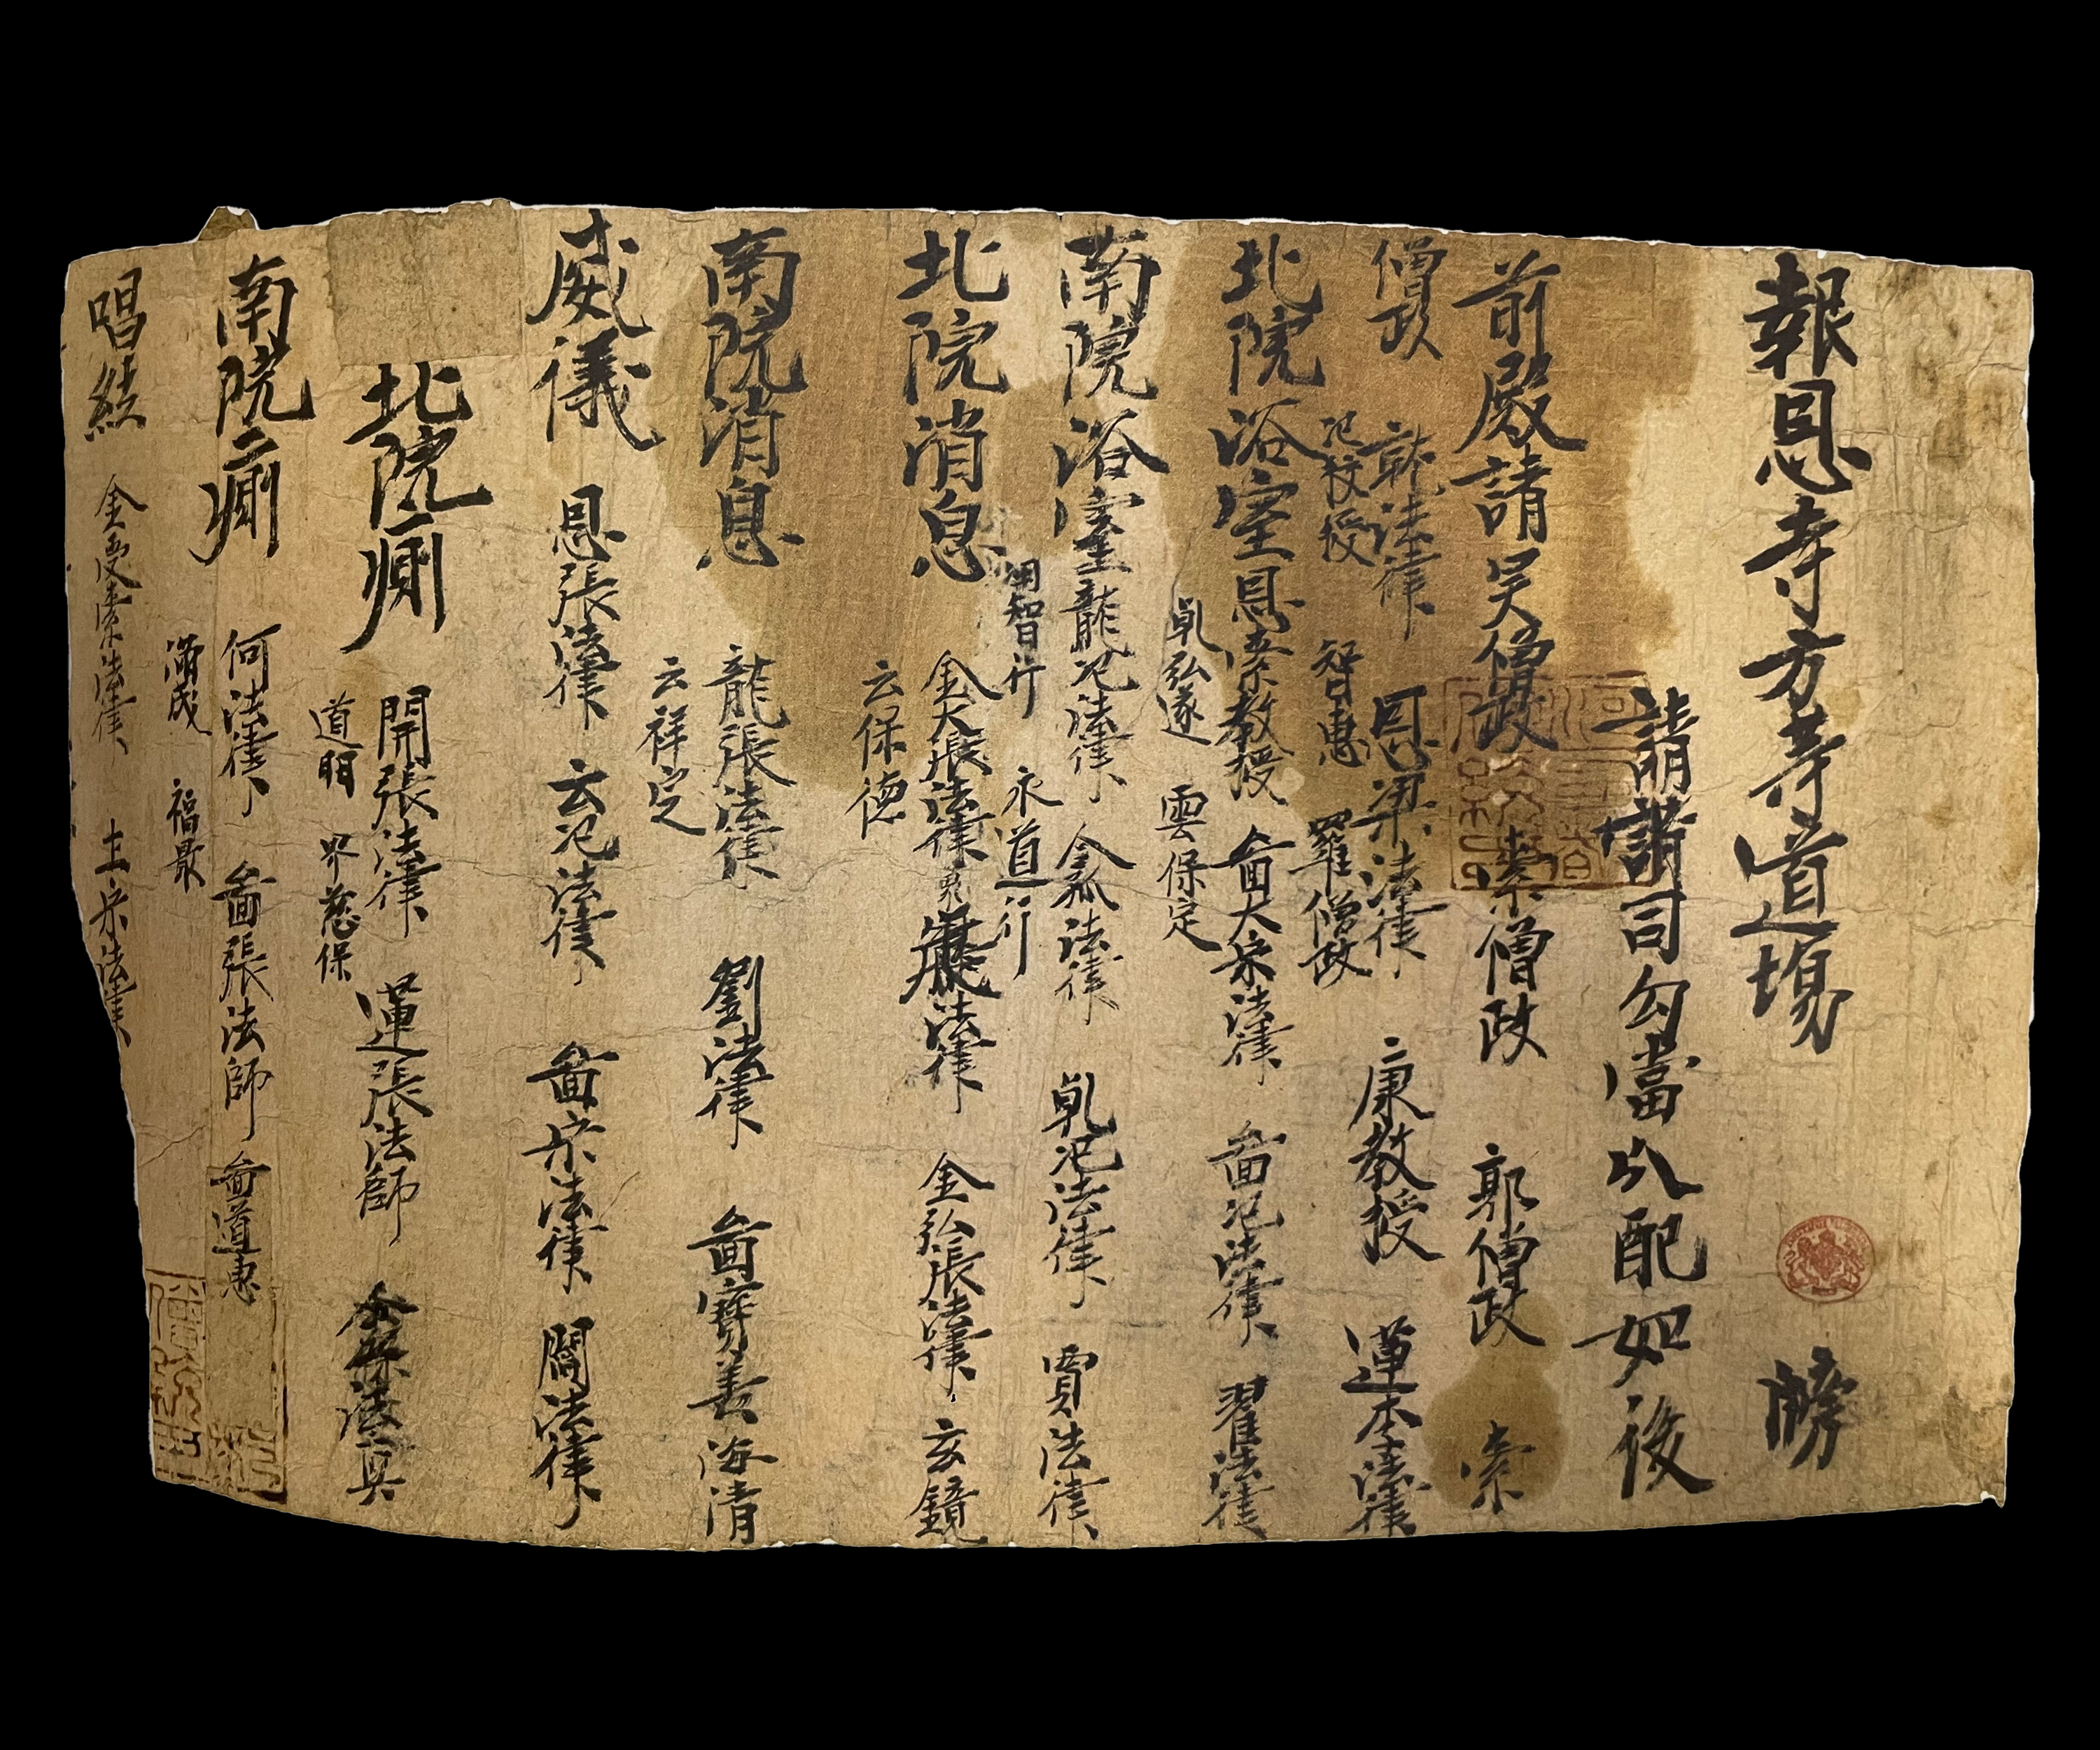 報恩寺方等道場　牓
請諸司勾當分配如後
前殿請吴僧政　索僧政　郭僧政　索
僧政　法律　恩梁法律　康教授　蓮本法律
氾校授　智惠　羅僧政
北院浴室恩索教授　啚大宋法律　啚氾法律　翟法律
乹弘遂　雲保定
南院浴室龍氾法律　金孤法律　乹氾法律　賈法律
智行　永道行
北院消息　金大張法律　法律　金弘張法律　玄鏡
云保德
南院消息　龍張法律　劉法律　啚寶善　海清
云祥定
威儀　恩張法律　云氾法律　啚宋法律　閻法律
北院廁　開張法律　蓮張法師　法真
道明　界慈保
南院廁　何法律　啚張法師　啚道惠
福最
唱經　金索法律　土宋法律